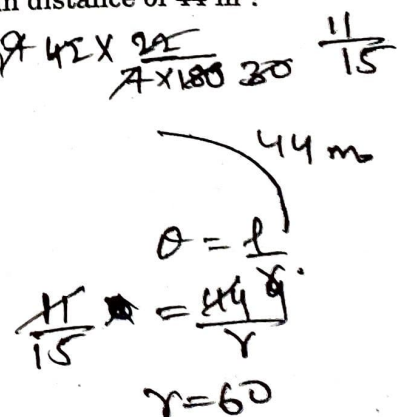 n distance of 44 m .
42 × 22 / 7 × 180 30
11 / 15
44 m
θ = l / r
11 / 15 = 44 4 / r
r = 60